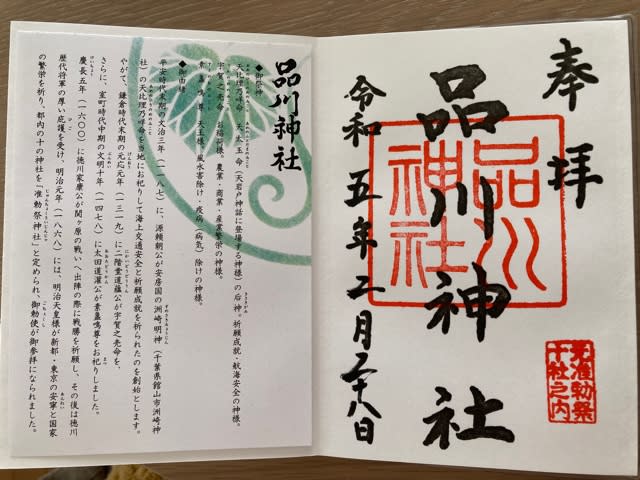 奉拝
品川神社
品川神社
元准勅祭十社之内
令和五年二月二十八日
品川神社
◆御祭神
天比理乃咩命 天太玉命(天岩戸神話に登場する神様)の后神。祈願成就・航海安全の神様。
宇賀之売命 お稲荷様。農業・商業・産業繁栄の神様。
素盞嗚尊 天王様。風水害除け・疫病(病気)除けの神様。
◆御由緒
平安時代末期の文治三年(一一八七)に、源頼朝公が安房国の洲崎明神(千葉県館山市洲崎神
社)の天比理乃咩命を当地にお祀りして海上交通安全と祈願成就を祈られたのを創始とします。
やがて、鎌倉時代末期の元応元年(一三一九)に二階堂道蘊公が宇賀之売命を、
さらに、室町時代中期の文明十年(一四七八)に太田道灌公が素盞嗚尊をお祀りしました。
慶長五年(一六〇〇)に徳川家康公が関ヶ原の戦いへ出陣の際に戦勝を祈願し、その後は徳川
歴代将軍の厚い庇護を受け、明治元年(一八六八)には、明治天皇様が新都・東京の安寧と国家
の繁栄を祈り、都内の十の神社を「准勅祭神社」と定められ、御勅使が御参拝になられました。